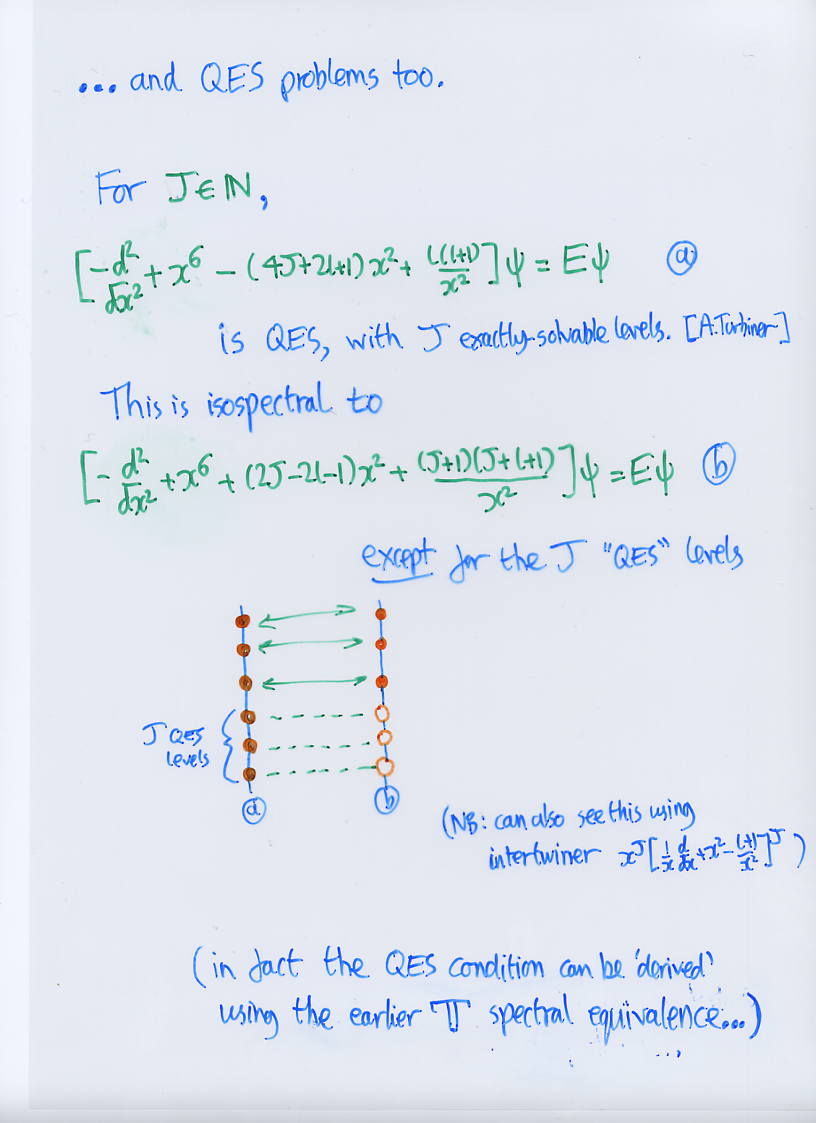 ... and QES problems too.
For J∈ℕ,
[-d²/dx² + x⁶ - (4J+2l+1)x² + l(l+1)/x²]ψ = Eψ ⓐ
is QES, with J exactly-solvable levels. [A.Turbiner]
This is isospectral to
[-d²/dx² + x⁶ + (2J-2l-1)x² + (J+l)(J+l+1)/x²]ψ = Eψ ⓑ
except for the J "QES" levels
J QES
levels
ⓐ ⓑ
(NB: can also see this using
intertwiner x^J[1/x d/dx + x² - (l+1)/x²]^J)
(in fact the QES condition can be 'derived'
using the earlier TT spectral equivalence...)